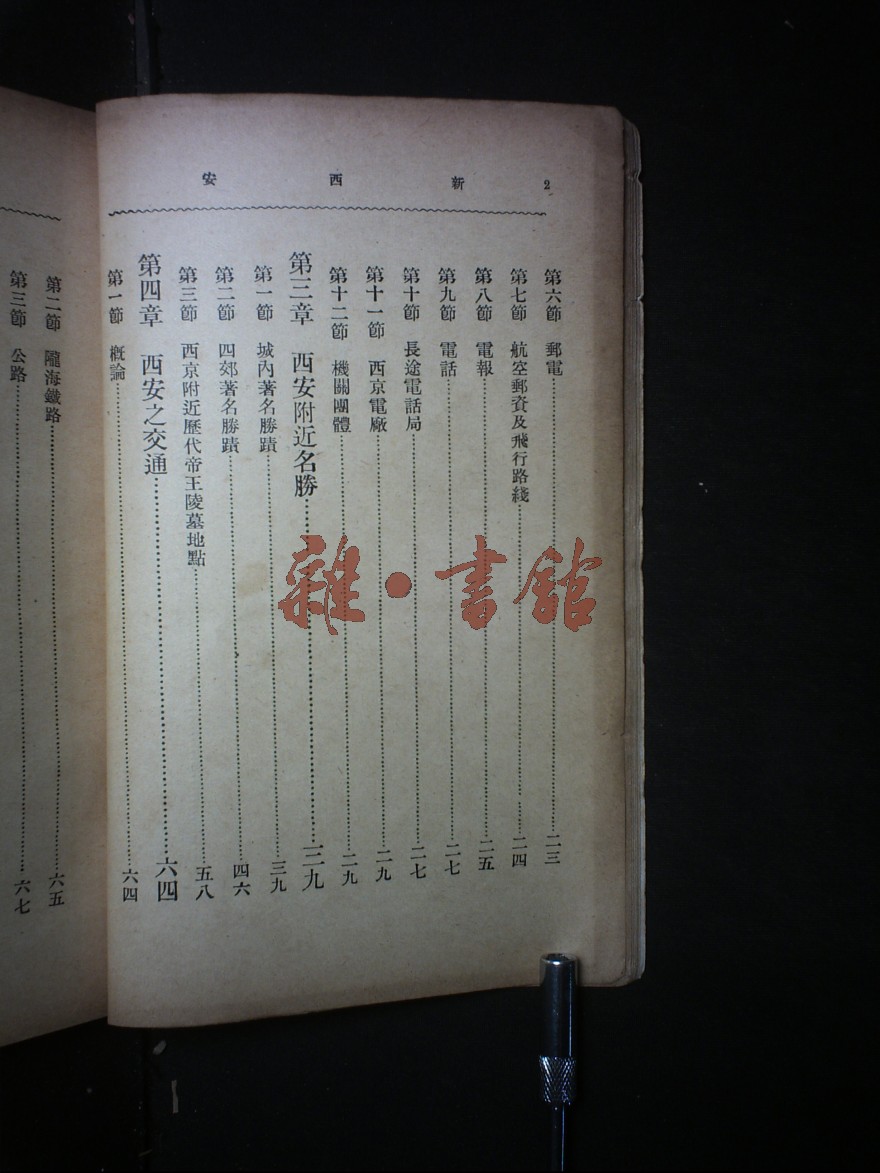 2 新西安
第六節 郵電……二三
第七節 航空郵資及飛行路綫……二四
第八節 電報……二五
第九節 電話……二七
第十節 長途電話局……二七
第十一節 西京電廠……二九
第十二節 機關團體……二九
第三章 西安附近名勝……三九
第一節 城內著名勝蹟……三九
第二節 四郊著名勝蹟……四六
第三節 西京附近歷代帝王陵墓地點……五八
第四章 西安之交通……六四
第一節 概論……六四
第二節 隴海鐵路……六五
第三節 公路……六七
雜·書館